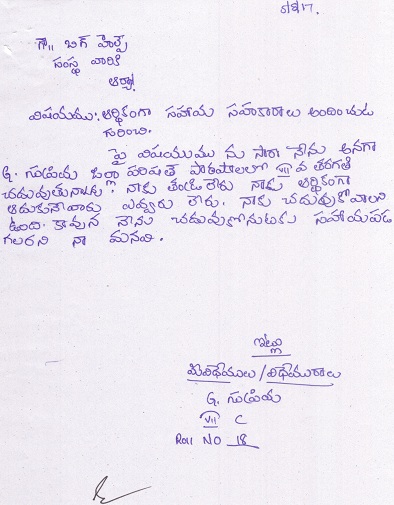 5/8/17.
గౌ|| బిగ్ హెల్ప్
సంస్థ వారికి
ఆర్యా!
విషయము:- ఆర్థికంగా సహాయ సహకారాలు అందించుట
గురించి.
పై విషయము ను సారా నేను అనగా
G. సుప్రియ జిల్లా పరిషత్ పాఠశాలలో VII వ తరగతి
చదువుతున్నాను. నాకు తండ్రి లేరు నాకు ఆర్థికంగా
ఆదుకునేవారు ఎవ్వరు లేరు. నాకు చదువుకోవాలని
ఉంది. కావున నేను చదువుకొనుటకు సహాయపడ
గలరని నా మనవి.
ఇట్లు
విధేయులు / విధేయురాలు
G. సుప్రియ
VII C
Roll NO 18